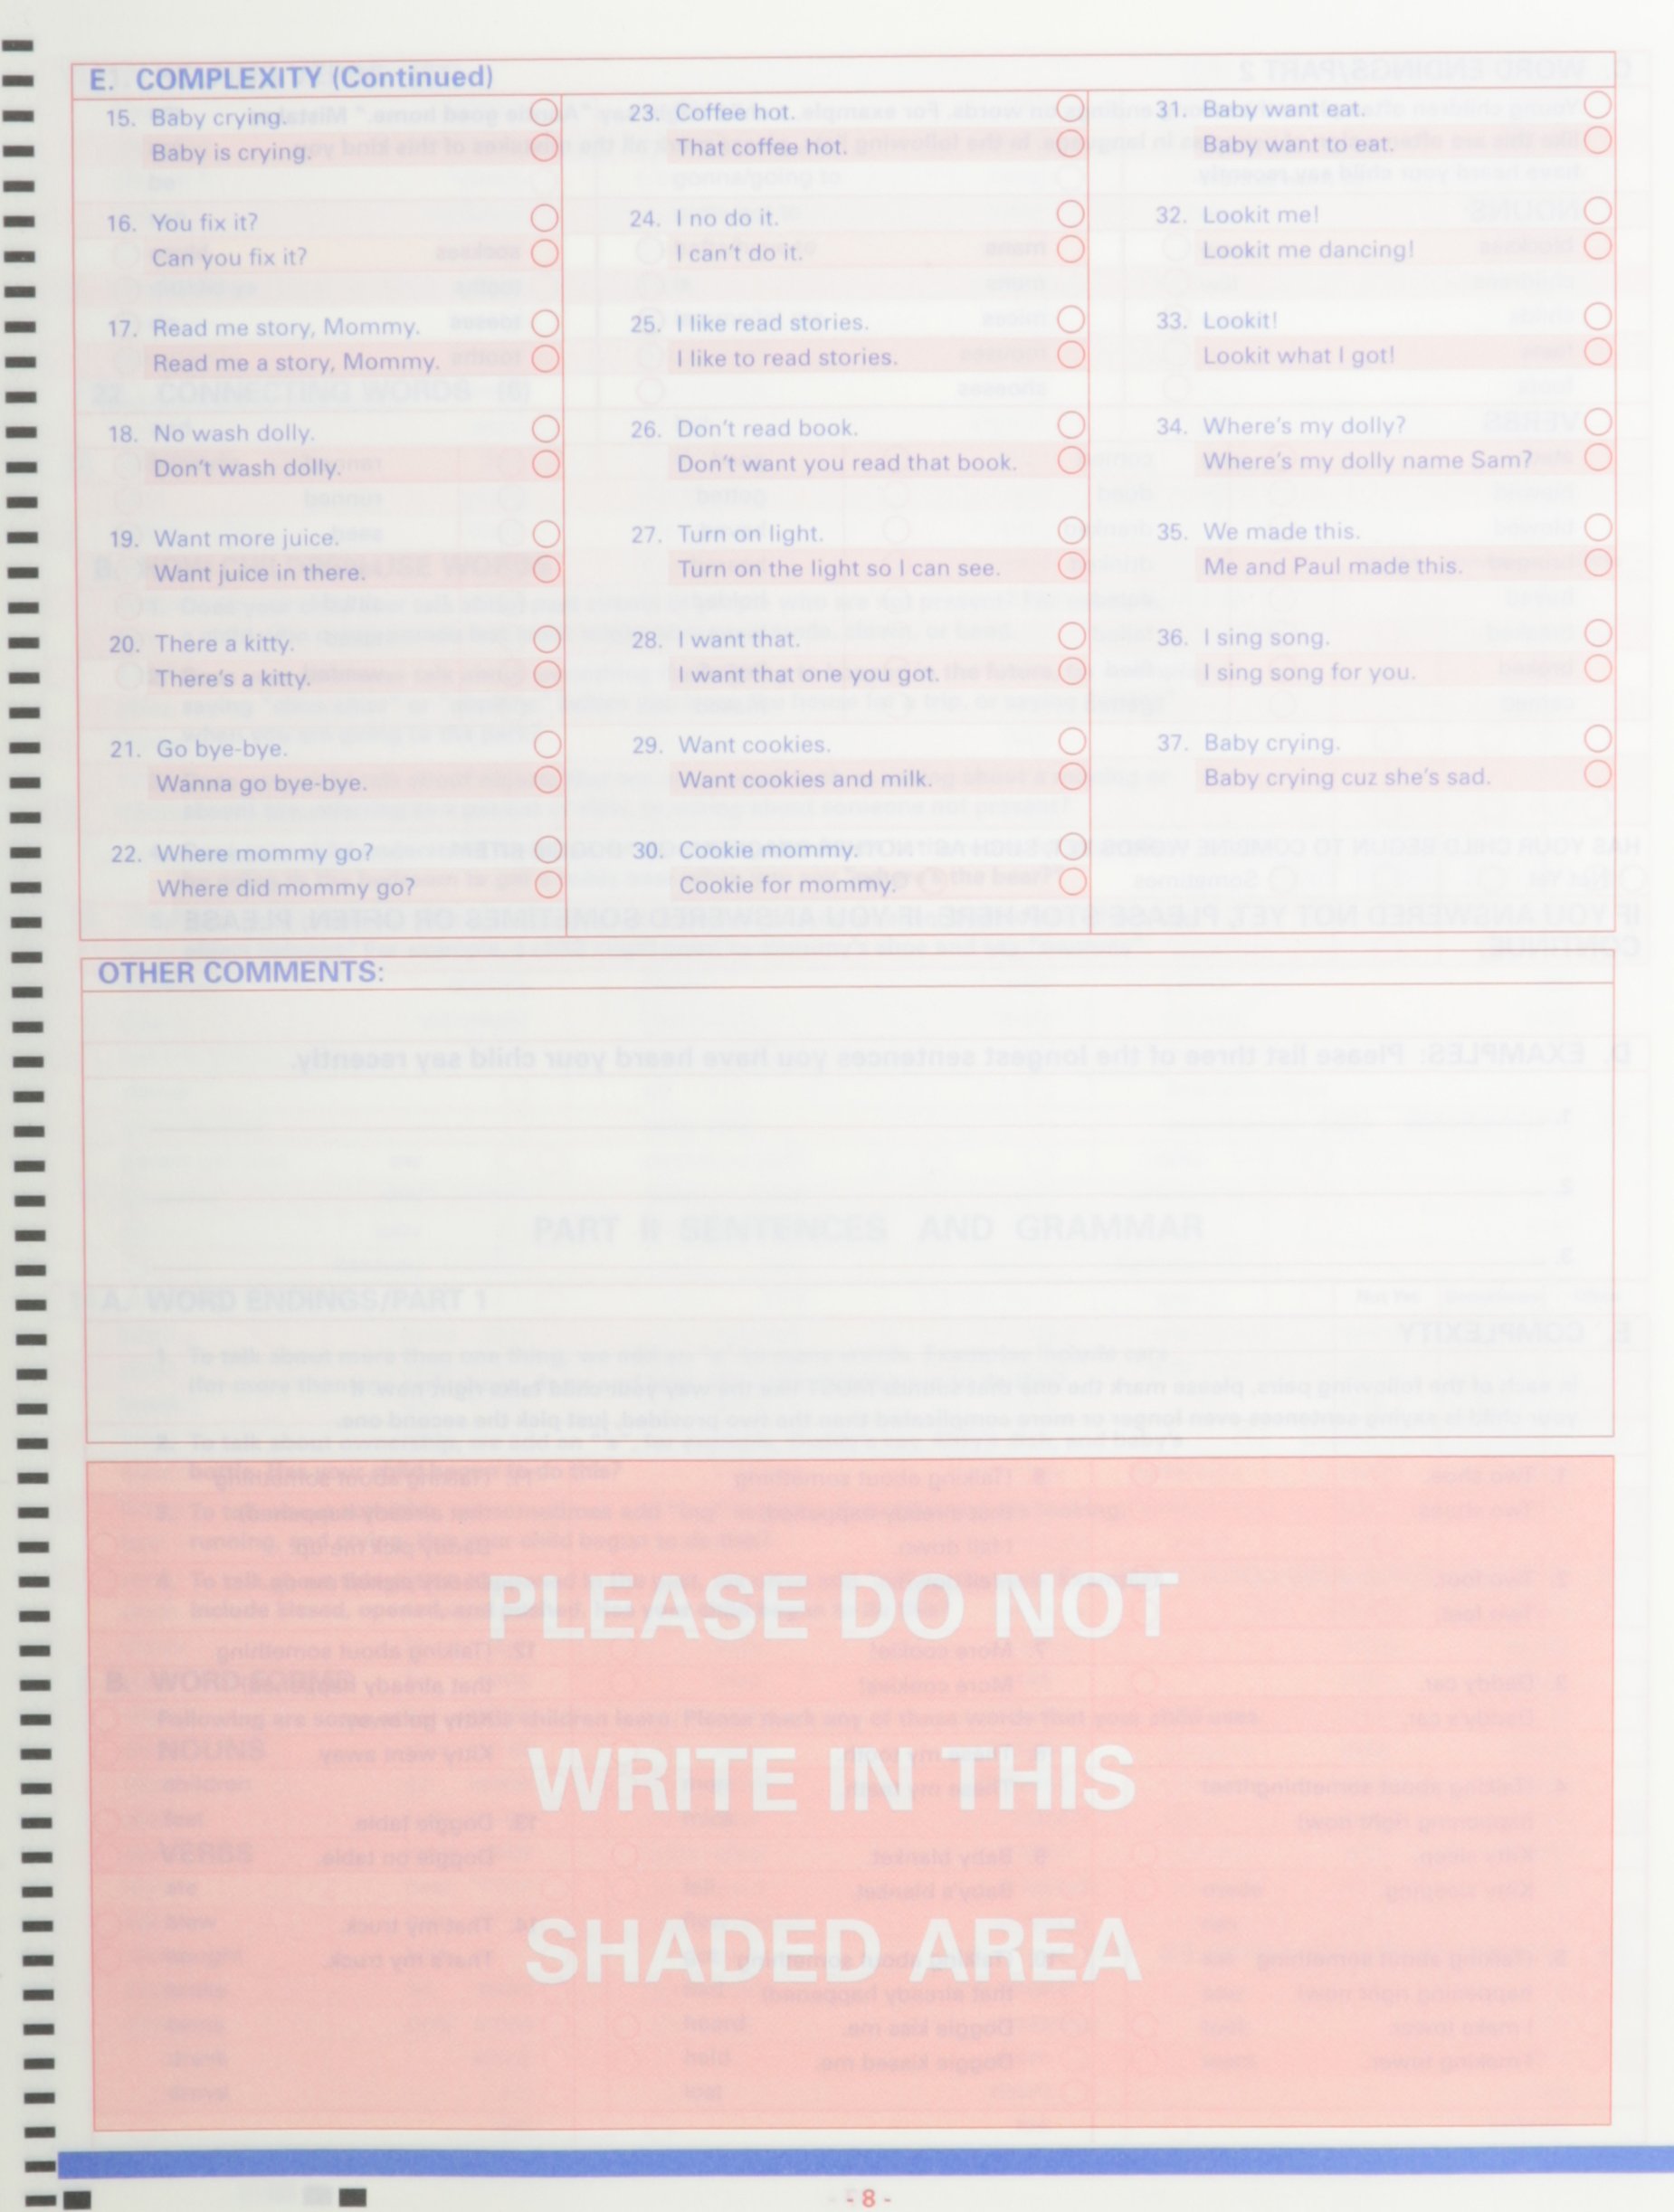 E. COMPLEXITY (Continued)
15. Baby crying.
Baby is crying.
16. You fix it?
Can you fix it?
17. Read me story, Mommy.
Read me a story, Mommy.
18. No wash dolly.
Don't wash dolly.
19. Want more juice.
Want juice in there.
20. There a kitty.
There's a kitty.
21. Go bye-bye.
Wanna go bye-bye.
22. Where mommy go?
Where did mommy go?
23. Coffee hot.
That coffee hot.
24. I no do it.
I can't do it.
25. I like read stories.
I like to read stories.
26. Don't read book.
Don't want you read that book.
27. Turn on light.
Turn on the light so I can see.
28. I want that.
I want that one you got.
29. Want cookies.
Want cookies and milk.
30. Cookie mommy.
Cookie for mommy.
31. Baby want eat.
Baby want to eat.
32. Lookit me!
Lookit me dancing!
33. Lookit!
Lookit what I got!
34. Where's my dolly?
Where's my dolly name Sam?
35. We made this.
Me and Paul made this.
36. I sing song.
I sing song for you.
37. Baby crying.
Baby crying cuz she's sad.
OTHER COMMENTS:
PLEASE DO NOT
WRITE IN THIS
SHADED AREA
- 8 -